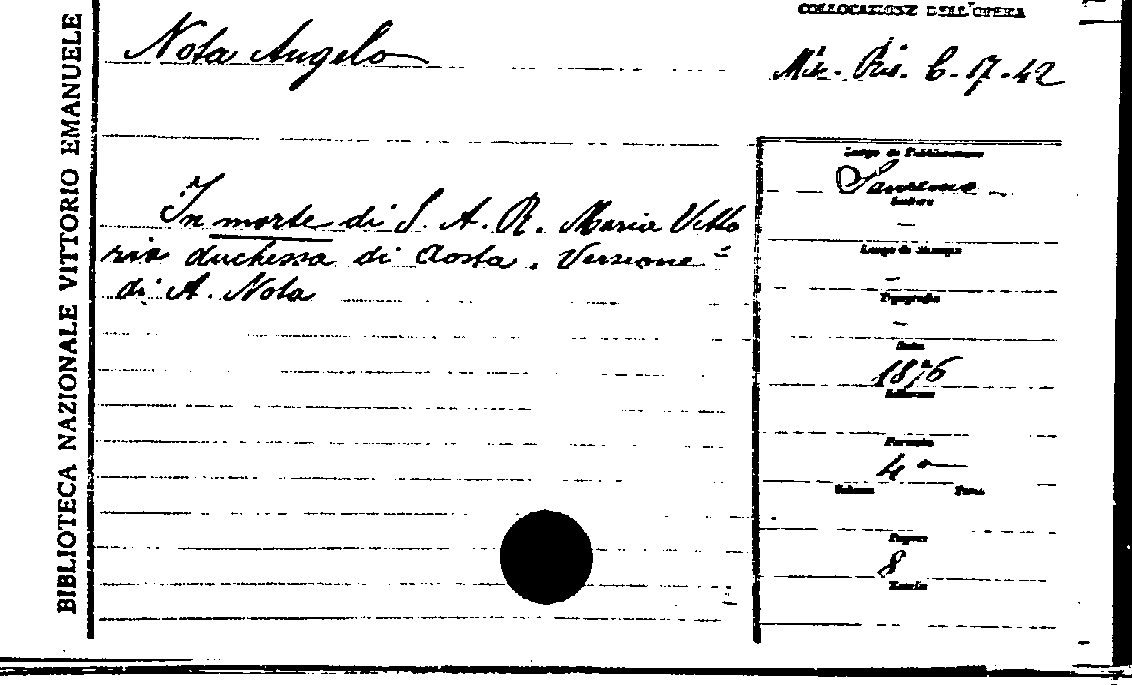 BIBLIOTECA NAZIONALE VITTORIO EMANUELE
COLLOCAZIONE DELL'OPERA
Nota Angelo
Mis. Ris. 6.17.42
In morte di S. A. R. Maria Vitto
ria duchessa di Aosta. Versione
di A. Nota
Luogo di Pubblicazione
Editore
—
Luogo di Stampa
—
Tipografia
—
Data
1876
Edizione
Formato
4°
Volume Tomo
Pagine
8